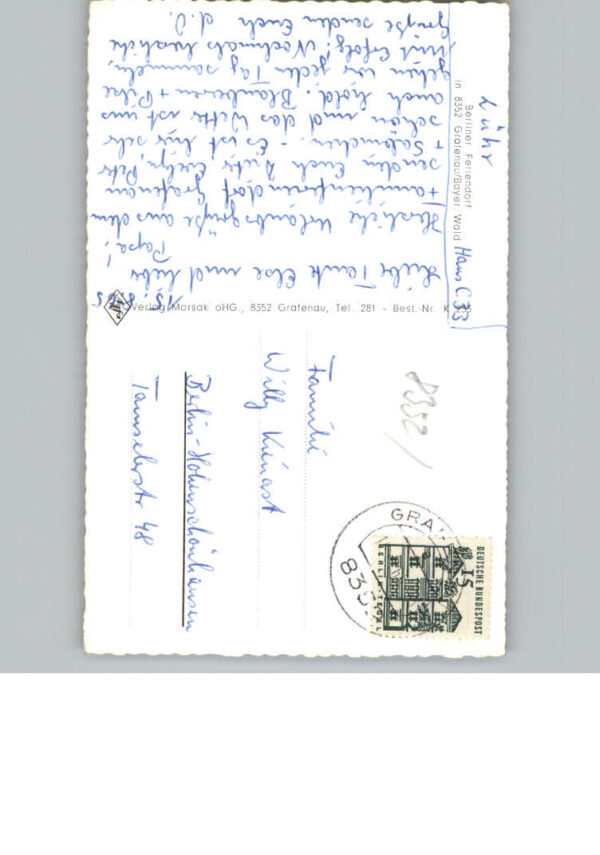 15. 8. 65
Liebe Tante Else und lieber
Papa!
Herzliche Urlaubsgrüße aus dem
Familienferiendorf Grafenau
senden Euch Dietz, Evelyn, Petr
+ Salömchen. - Es ist hier sehr
schön und das Wetter ist uns
auch hold. Blaubeeren + Pilze
gehen wir jeden Tag sammeln,
mit Erfolg! Nochmals herzliche
Grüße senden Euch d. O.
Lühr
Berliner Feriendorf
in 8352 Grafenau/Bayer. Wald
Haus C 33
Verlag Morsak oHG., 8352 Grafenau, Tel. 281 - Best.-Nr. K
8352/
Familie
Willy Kienast
Berlin-Hohenschönhausen
Tamselerstr 48
GRA
835
DEUTSCHE BUNDESPOST
15
BERLIN-TEGEL